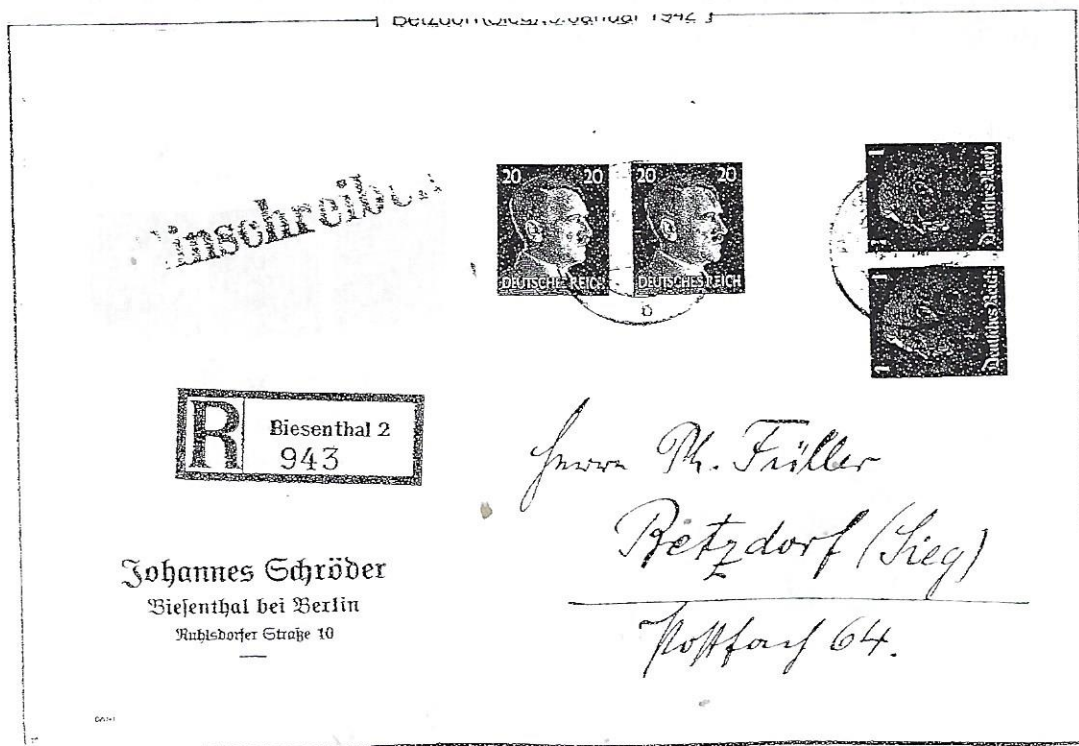 1942
20 20
DEUTSCHES REICH
20 20
DEUTSCHES REICH
1
Deutsches Reich
1
Deutsches Reich
R
Biesenthal 2
943
Herrn Ph. Füller
Betzdorf (Sieg)
Postfach 64.
Johannes Schröder
Biesenthal bei Berlin
Ruhlsdorfer Straße 10